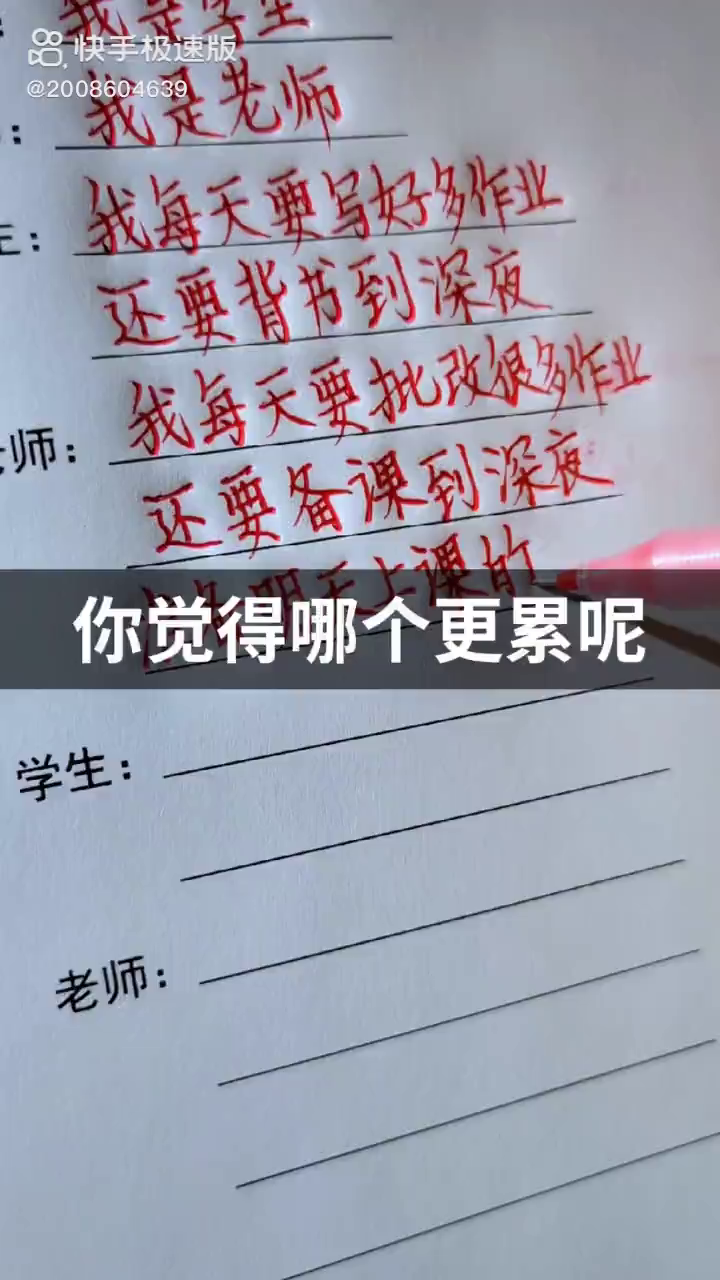 我是学生
快手极速版
@2008604639
：我是老师
生：我每天要写好多作业
还要背书到深夜
老师：我每天要批改很多作业
还要备课到深夜
明天上课的
你觉得哪个更累呢
学生：
老师：